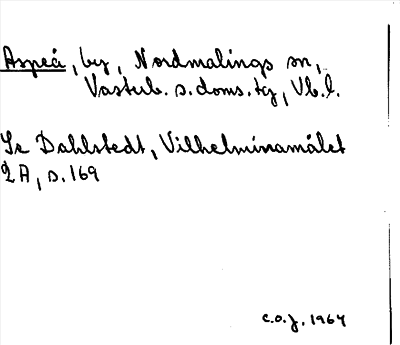 Aspeå, by, Nordmalings sn,
Västerb. s. doms. tg, Vb. l.
Se Dahlstedt, Vilhelminamålet
2 A, s. 169
C.O.J. 1964